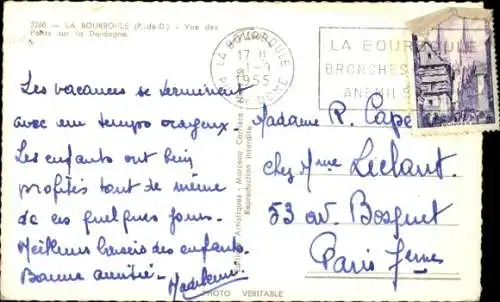 7286. — LA BOURBOULE (P.-de-D.) - Vue des
Ponts sur la Dordogne.
LA BOURBOULE
17 H
1-9
1955
PUY DE DOME
LA BOURBOULE
BRONCHES
ANEMIES
Les vacances se terminent
avec un temps orageux.
Les enfants ont bien
profités tout de même
de ces quelques jours.
Meilleurs baisers des enfants.
Bonne amitié - Madeleine
Artistiques - Marceau Carrière
Reproduction interdite
Madame R. Cape
chez Mme Liclant
53 av. Bosquet
Paris 7eme
PHOTO VERITABLE